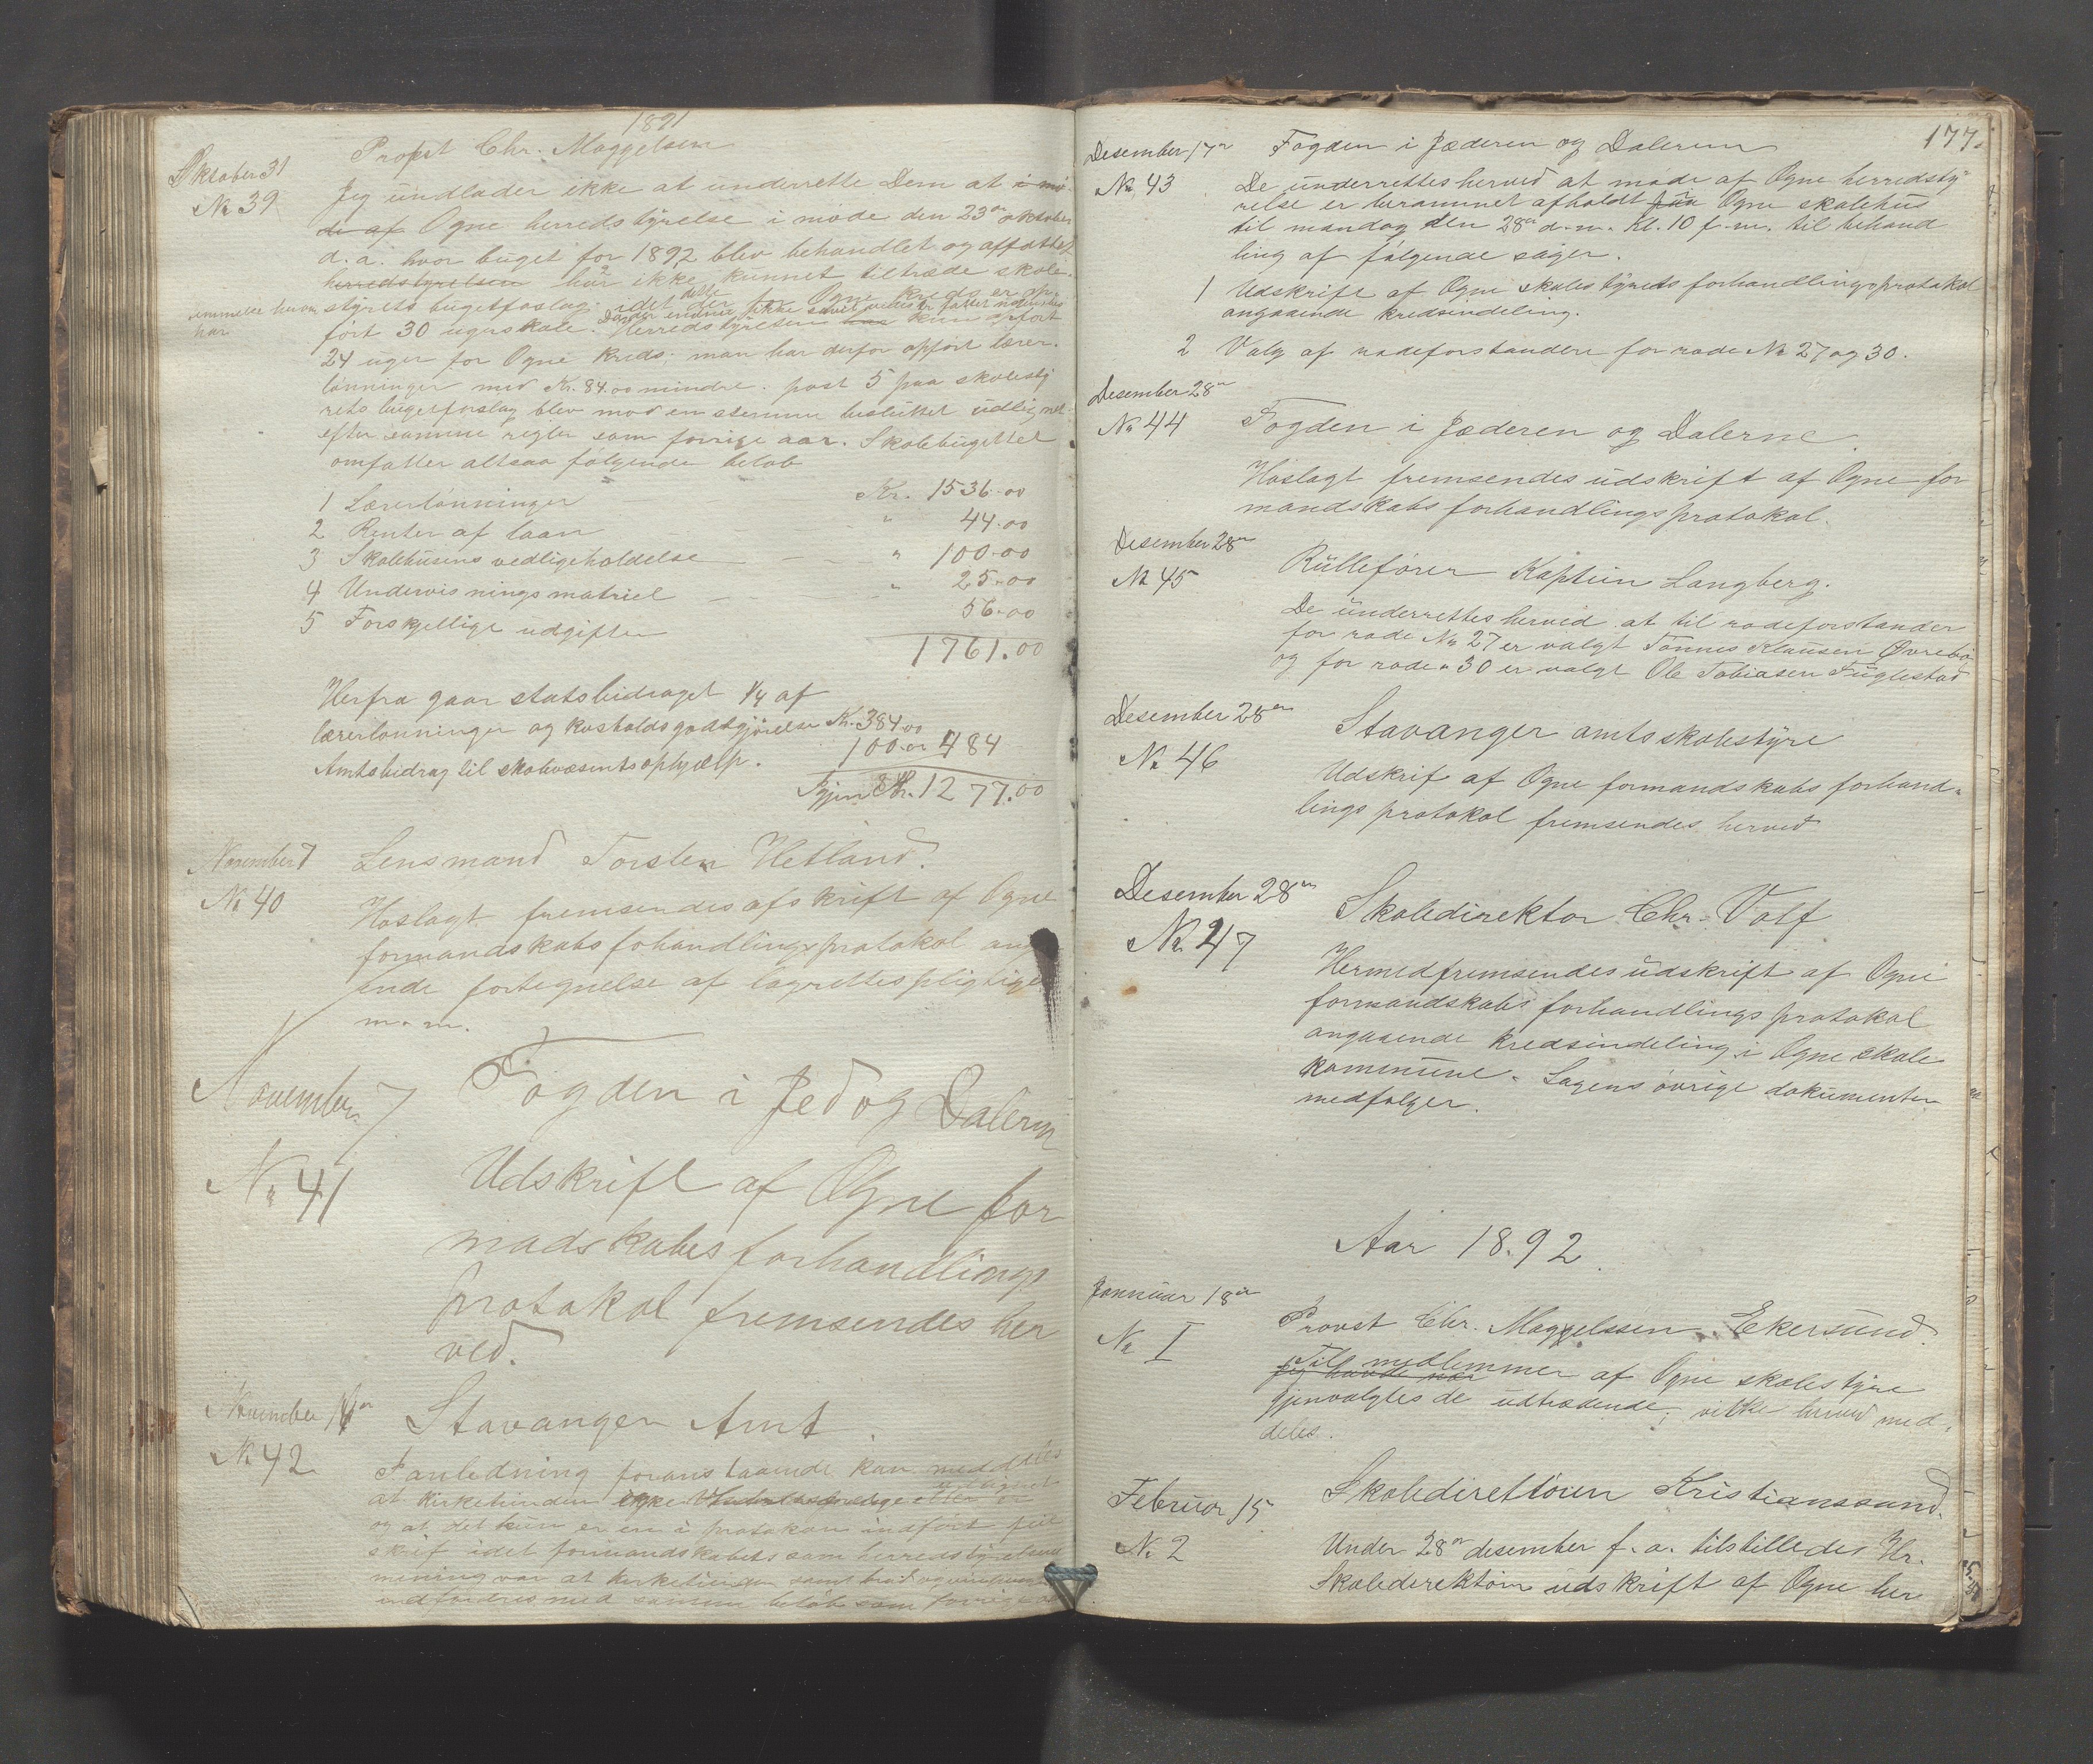 1891
Oktober 31
No 39
Propst Chr. Maggelsen
Jeg undlader ikke at underrette Dem at i mø-
de af Ogne herredstyrelse i møde den 23de oktober
d. a. hvor buget for 1892 blev behandlet og affattet
herredstyrelsen har ikke kunnet tiltræde skole-
styrets bugetforslag idet der for Ogne kreds er op-
ført 30 ugers skole. herredstyrelsen har kun opført
24 uger for Ogne kreds. man har derfor opført lærer-
lønninger med Kr. 84.00 mindre. post 5 paa skolesty
rets bugetforslag blev mod en stemme besluttet udlignet
efter samme regler som forrige aar. Skolebugettet
omfatter altsaa følgende beløb
1 Lærerlønninger Kr. 1536.00
2 Renter af laan " 44.00
3 Skolehusens vedligeholdelse " 100.00
4 Undervisningsmatriel " 25.00
5 Forskjellige udgifter 56.00
1761.00
Herfra gaar statsbidraget 1/4 af
lærerlønninger og kostholdsgodtgjørelse Kr. 384.00
Amtsbidrag til skolevæsents ophjælp. 100.00 484
Igjen Kr. 1277.00
November 7
No 40
Lensmand Torsten Hetland.
Hoslagt fremsendes afskrift af Ogne
formandskabs fohandlingsprotokol ang
ende fortegnelse af lagrettespligtige
m. m.
November 7
No 41
Fogden i Jed og Dalern
Udskrift af Ogne for
madskabes forhandlings
protokol fremsendes her
ved.
November 14de
No 42
Stavanger Amt.
I anledning foranstaaende kan meddeles
at kirketienden ikke
og at det kun er en i protokolen indført feil
skrif idet formandskabets som herredstyrelsens
mening var at kirketienden samt
indfordres med samme beløb som forrige aar
177.
Desember 17de
No 43
Fogden i Jæderen og Dalerne
De underrettes herved at møde af Ogne herredsty-
relse er berammet afholdt paa Ogne skolehus
til mandag den 28de d. m. Kl. 10 f. m. til behand
ling af følgende sager.
1 Udskrift af Ogne skolestyrets forhandlingsprotokol
angaaende kredsindeling.
2 Valg af rodeforstandere for rode No 27 og 30.
Desember 28de
No 44
Fogden i Jæderen og Dalerne
Hoslagt fremsendes udskrift af Ogne for
mandskabs forhandlingsprotokol.
Desember 28de
No 45
Rullefører Kaptein Langberg.
De underrettes herved at til rodeforstander
for rode No 27 er valgt Tønnes Klausen Øvrebø
og for rode " 30 er valgt Ole Tobiasen Fuglestad
Desember 28de
No 46
Stavanger amtsskolestyre
Udskrif af Ogne formandskabs forhand-
lings protokol fremsendes herved
Desember 28de
No 47
Skoledirektør Chr. Volf
Hermed fremsendes udskrift af Ogne
formandskabs forhandlings protokol
angaaende kredsindeling i Ogne skole
kommune. Sagens øvrige dokumenter
medfølger.
Aar 18.92.
Jannuar 18de
No I
Provst Chr. Maggelssen Ekersund.
Til medlemmer af Ogne skolestyre
gjenvalgtes de udtrædende; vilke herved med-
deles.
Februar 15
No 2
Skoledirettøren Kristianssand.
Under 28de desember f. a. tilstilledes Hr.
Skolederektøren udskrift af Ogne her